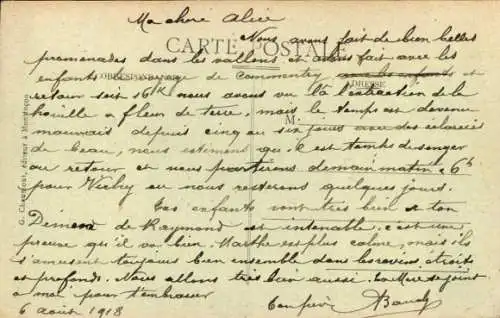 Ma chère Alice
Nous avons fait de bien belles
CARTE POSTALE
promenades dans les vallons et avons fait avec les
CORRESPONDANCE
enfants de Commentry avec les enfants et
ADRESSE
retour soit 16 K nous avons vu là l'extraction de la
houille à fleur de terre, mais le temps est devenu
M
mauvais depuis cinq ou six jours avec des éclaircis
de beau, nous estimons que c'est temps de songer
au retour et nous partirons demain matin à 6h
pour Vichy où nous resterons quelques jours.
Les enfants sont très bien et ton
Démon de Raymond est intenable, c'est une
preuve qu'il va bien. Marthe est plus calme, mais ils
s'amusent toujours bien ensemble dans les ravins étroits
et profonds. Nous allons très bien aussi. La Mère se joint
à moi pour t'embrasser
6 août 1918
Ton père
G. éditeur à Montluçon